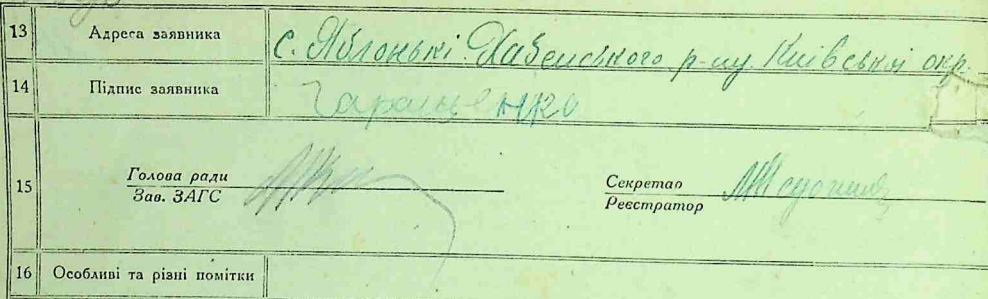 13 Адреса заявника с. Яблонькі Хабенського р-ну Київської окр.
14 Підпис заявника
15 Голова ради Секретар
Зав. ЗАГС Реєстратор
16 Особливі та різні помітки